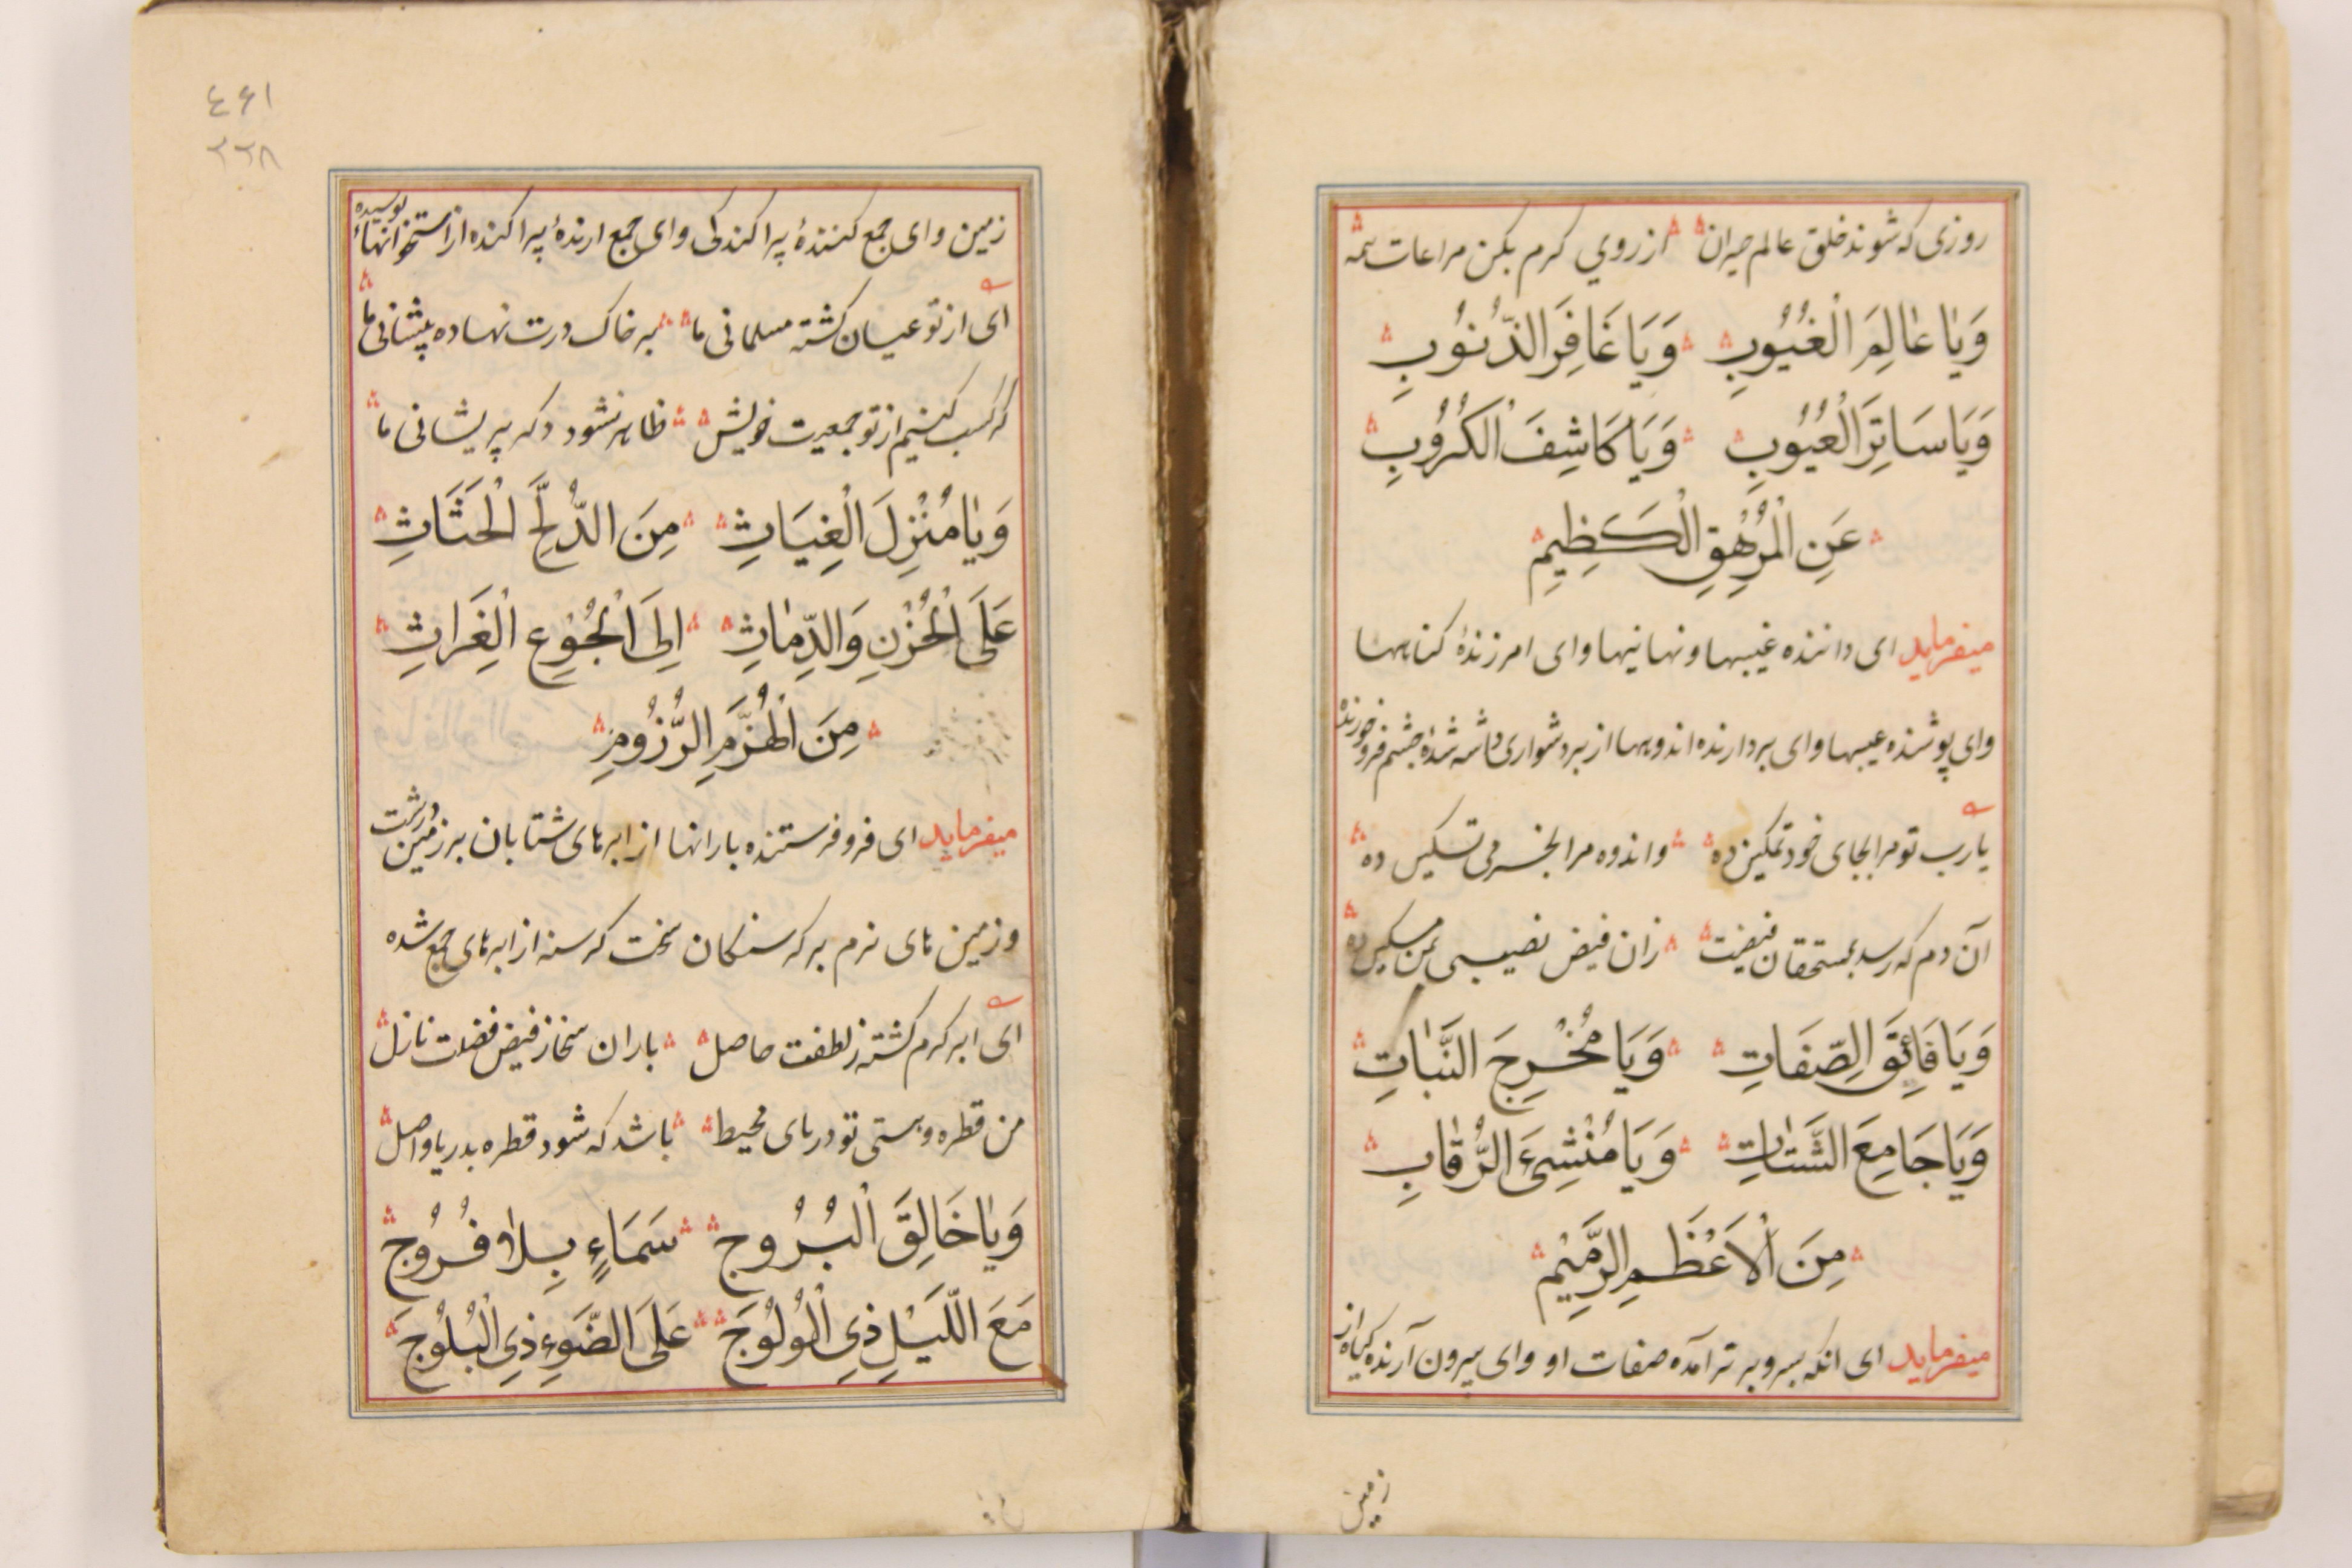 روزی که شوند خلق عالم حیران از روي کرم بکن مراعات همه
وَيٰا عٰالِمَ الْغُيُوبِ وَيَا غَافِرَ الذُّنُوبِ
وَيَا سَاتِرَ الْعُيُوبِ وَيَا كَاشِفَ الْكُرُوبِ
عَنِ الْمُرْهَقِ الْكَظِيمِ
میفرماید ای داننده غیبها و نهانیها و ای امرزندهٔ کناهها
وای پوشنده عیبها وای بردارنده اندوهها از بردشواری شده خشم فرو خورنده
یارب تو مرا بجای خود تمکین ده واندوه مرا بخرمی تسکین ده
آن دم که رسد بمستحقان فیضت زان فیض نصیبی بمن مسکین ده
وَيَا فَائِقَ الصِّفَاتِ وَيَا مُخْرِجَ النَّبٰاتِ
وَيَا جَامِعَ الشَّتٰاتِ وَيَا مُنْشِئَ الرُّفٰاتِ
مِنَ الْاَعْظُمِ الرَّمِيْمِ
میفرماید ای انکه بسر و برتر آمده صفات او وای بیرون آرنده کیاه از
زمین
٤۶۱
۲۲۸
زمین وای جمع کنندهٔ پراکندکی وای جمع ارندهٔ پراکنده از استخوانهاءٔ پوسیده
ای از تو عیان کشته مسلمانی ما بر خاک درت نهاده پیشانی ما
کر کسب کنیم از تو جمعیت خویش ظاهر نشود دکر پریشانی ما
وَيٰا مُنْزِلَ الْغِيَاثِ مِنَ الدُّلَّحِ الْحَثَاثِ
عَلَى الْحُزْنِ وَالدِّمٰاثِ اِلَى الْجُوّعِ الْغِرَاثِ
مِنَ الْهُزَّمِ الرُّزُومِ
میفرماید ای فرو فرستنده بارانها از ابرهای شتابان بر زمین درشت
و زمین های نرم بر کرسنکان سخت کرسنه از ابرهای جمع شده
ای ابر کرم کشته ز لطفت حاصل باران سخا ز فیض فضلت نازل
من قطره و هستی تو دریای محیط باشد که شود قطره بدریا واصل
وَيٰا خَالِقَ الْبُرُوجِ سَمَاءٍ بِلاٰ فُرُوجِ
مَعَ اللَّيْلِ ذِي الْوُلُوجِ عَلَى الضَّوْءِ ذِي الْبُلُوجِ